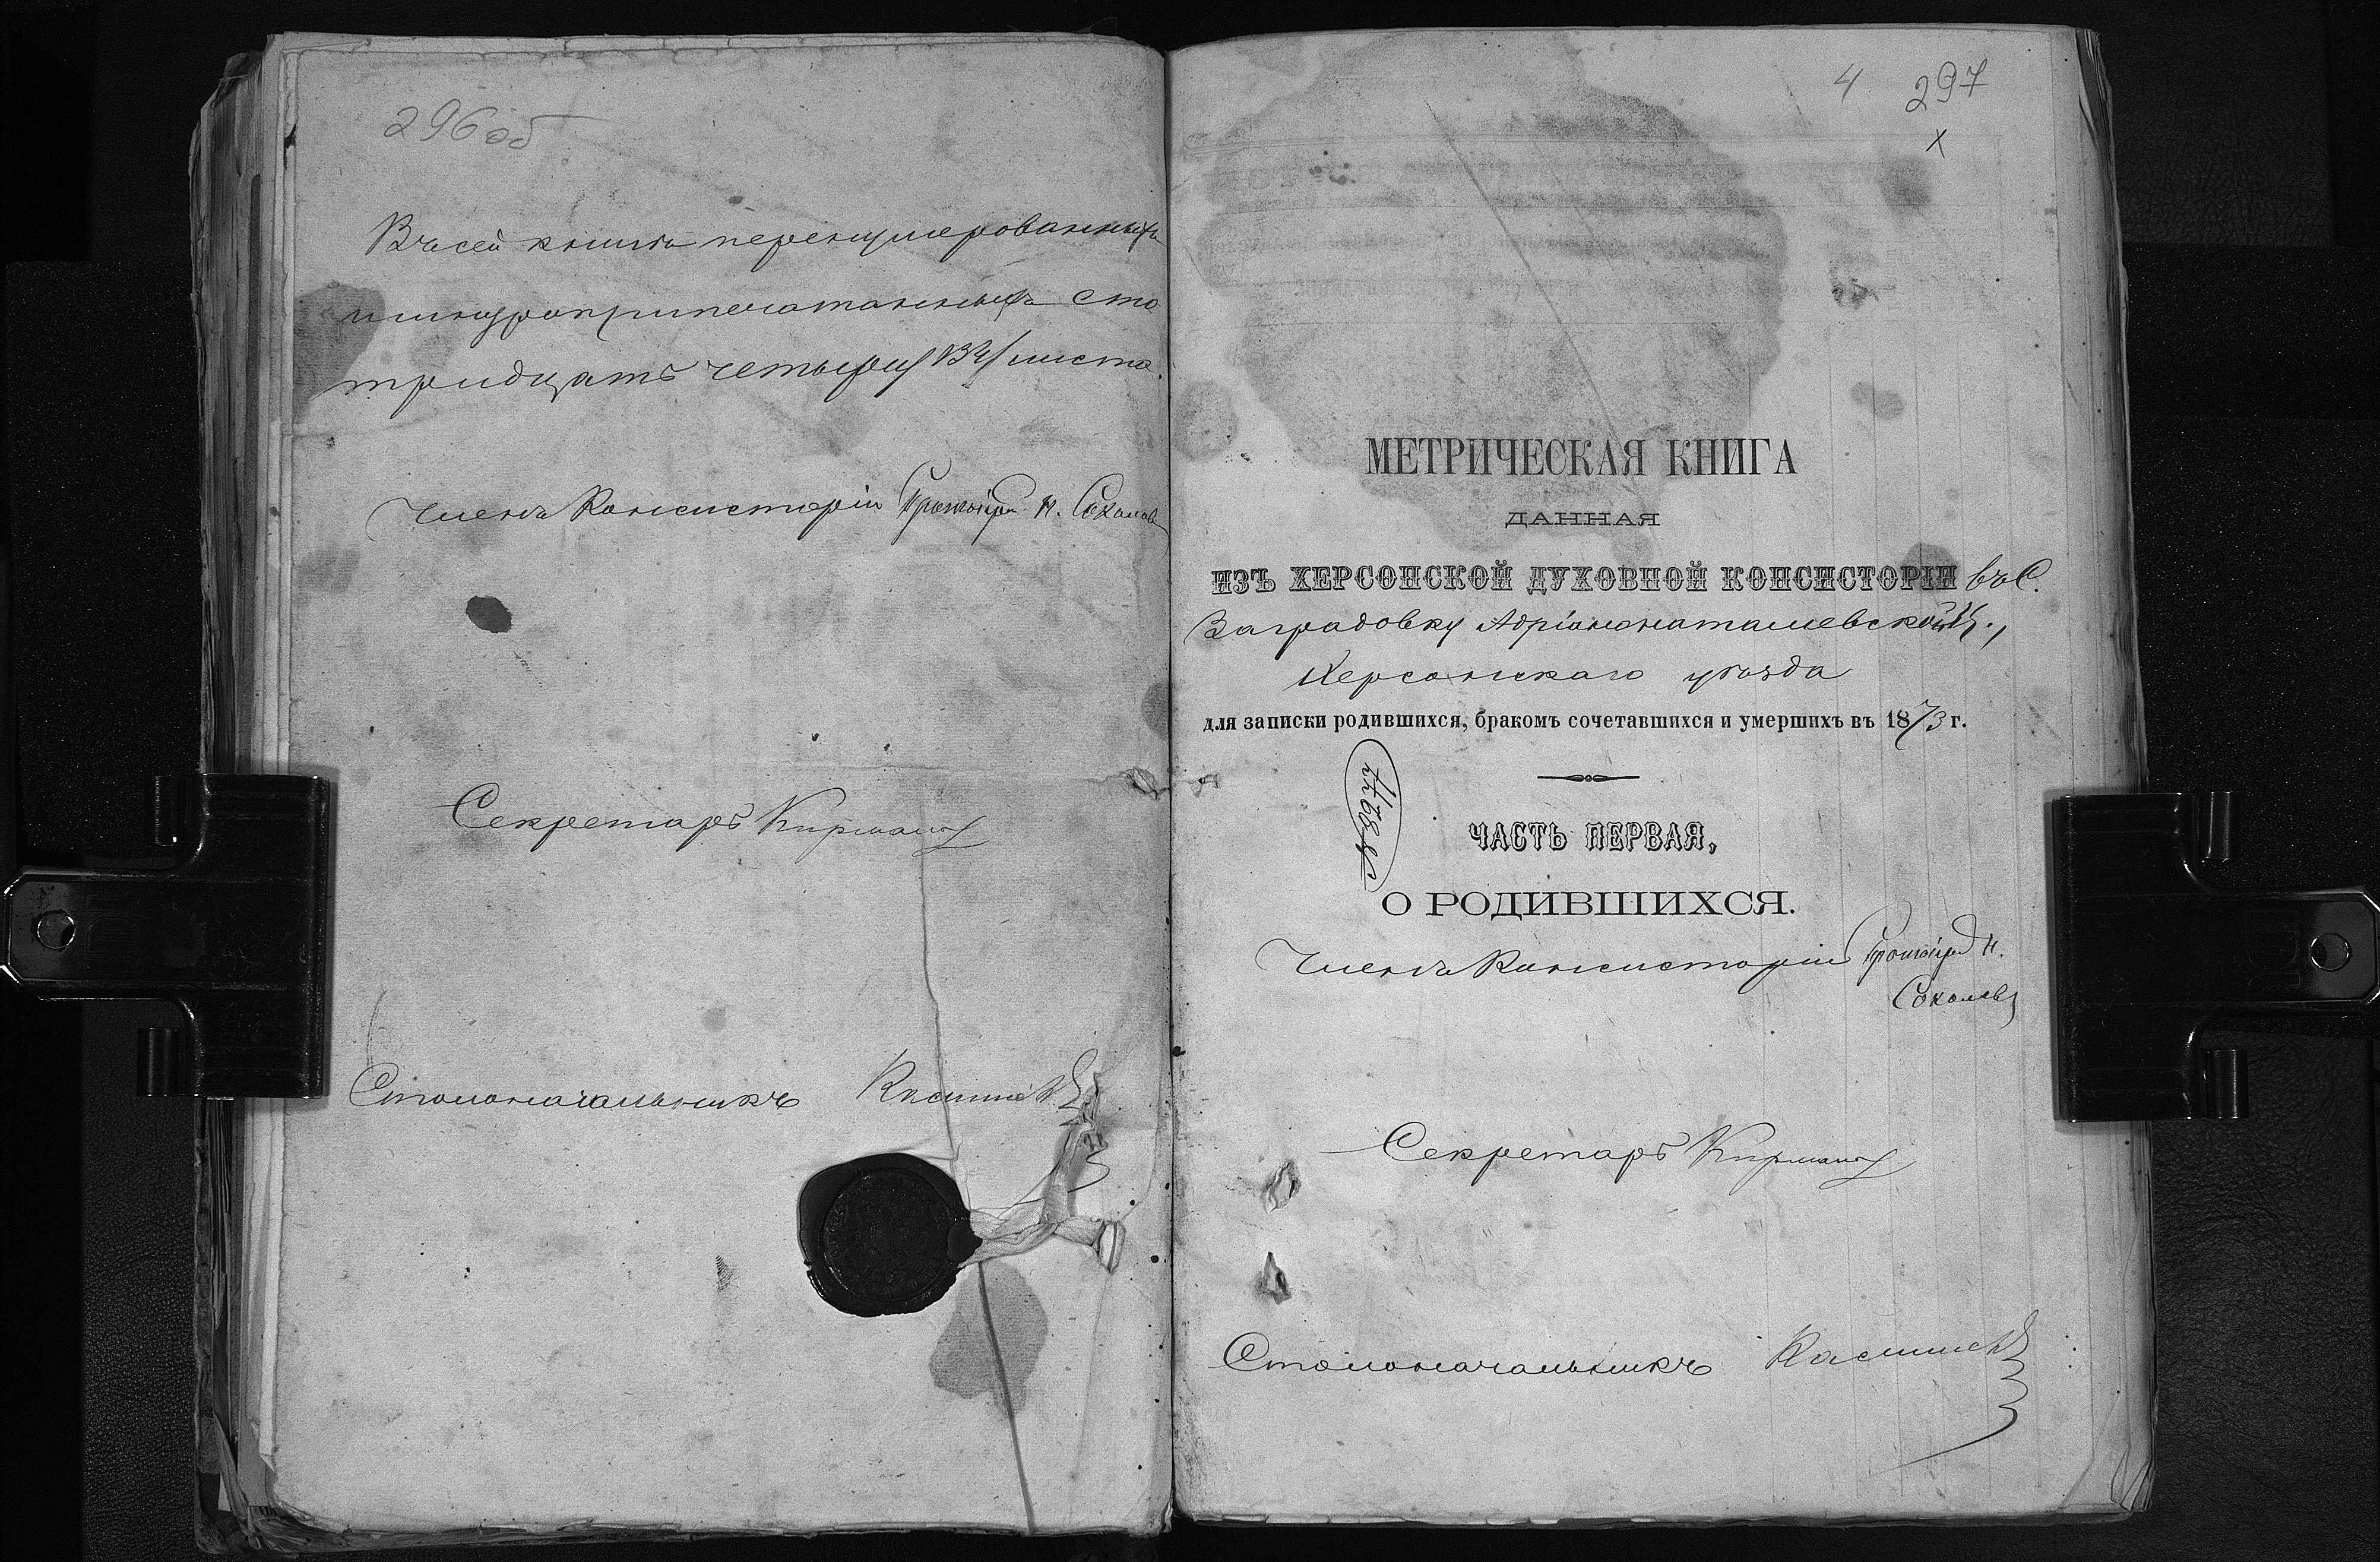 296 об
Въ сей книгѣ перенумерованныхъ
и шнуроприпечатанныхъ сто
тридцать четыре /134/ листа.
Членъ Консисторіи Протоіерей Н. Соколовъ
Секретарь
Столоначальникъ
4 297
х
МЕТРИЧЕСКАЯ КНИГА
ДАННАЯ
ИЗЪ ХЕРСОНСКОЙ ДУХОВНОЙ КОНСИСТОРІИ въ С.
Заградовку Адріанонаталіевской Ц.,
Херсонскаго уѣзда
для записки родившихся, бракомъ сочетавшихся и умершихъ въ 1873 г.
ЧАСТЬ ПЕРВАЯ,
О РОДИВШИХСЯ.
Членъ Консисторіи Протоіерей Н.
Соколовъ
Секретарь
Столоначальникъ